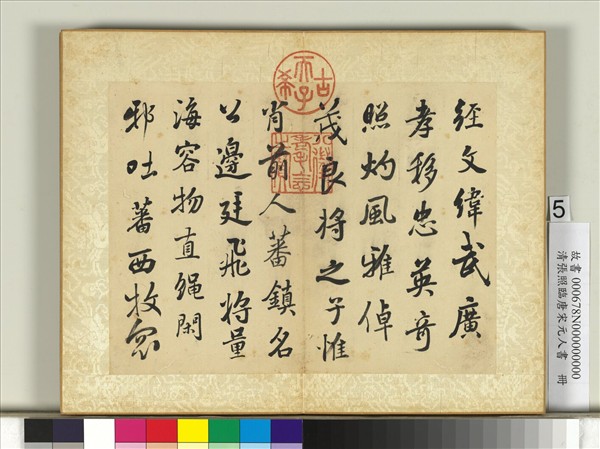 經文緯武廣
孝移忠英奇
照灼風雅倬
茂良將之子惟
肖前人蕃鎮名
公邊廷飛將量
海容物直繩閑
邪吐蕃西牧忽
古希天子
八徵耄念之寶
5
故書 000678N000000000
清張照臨唐宋元人書 冊